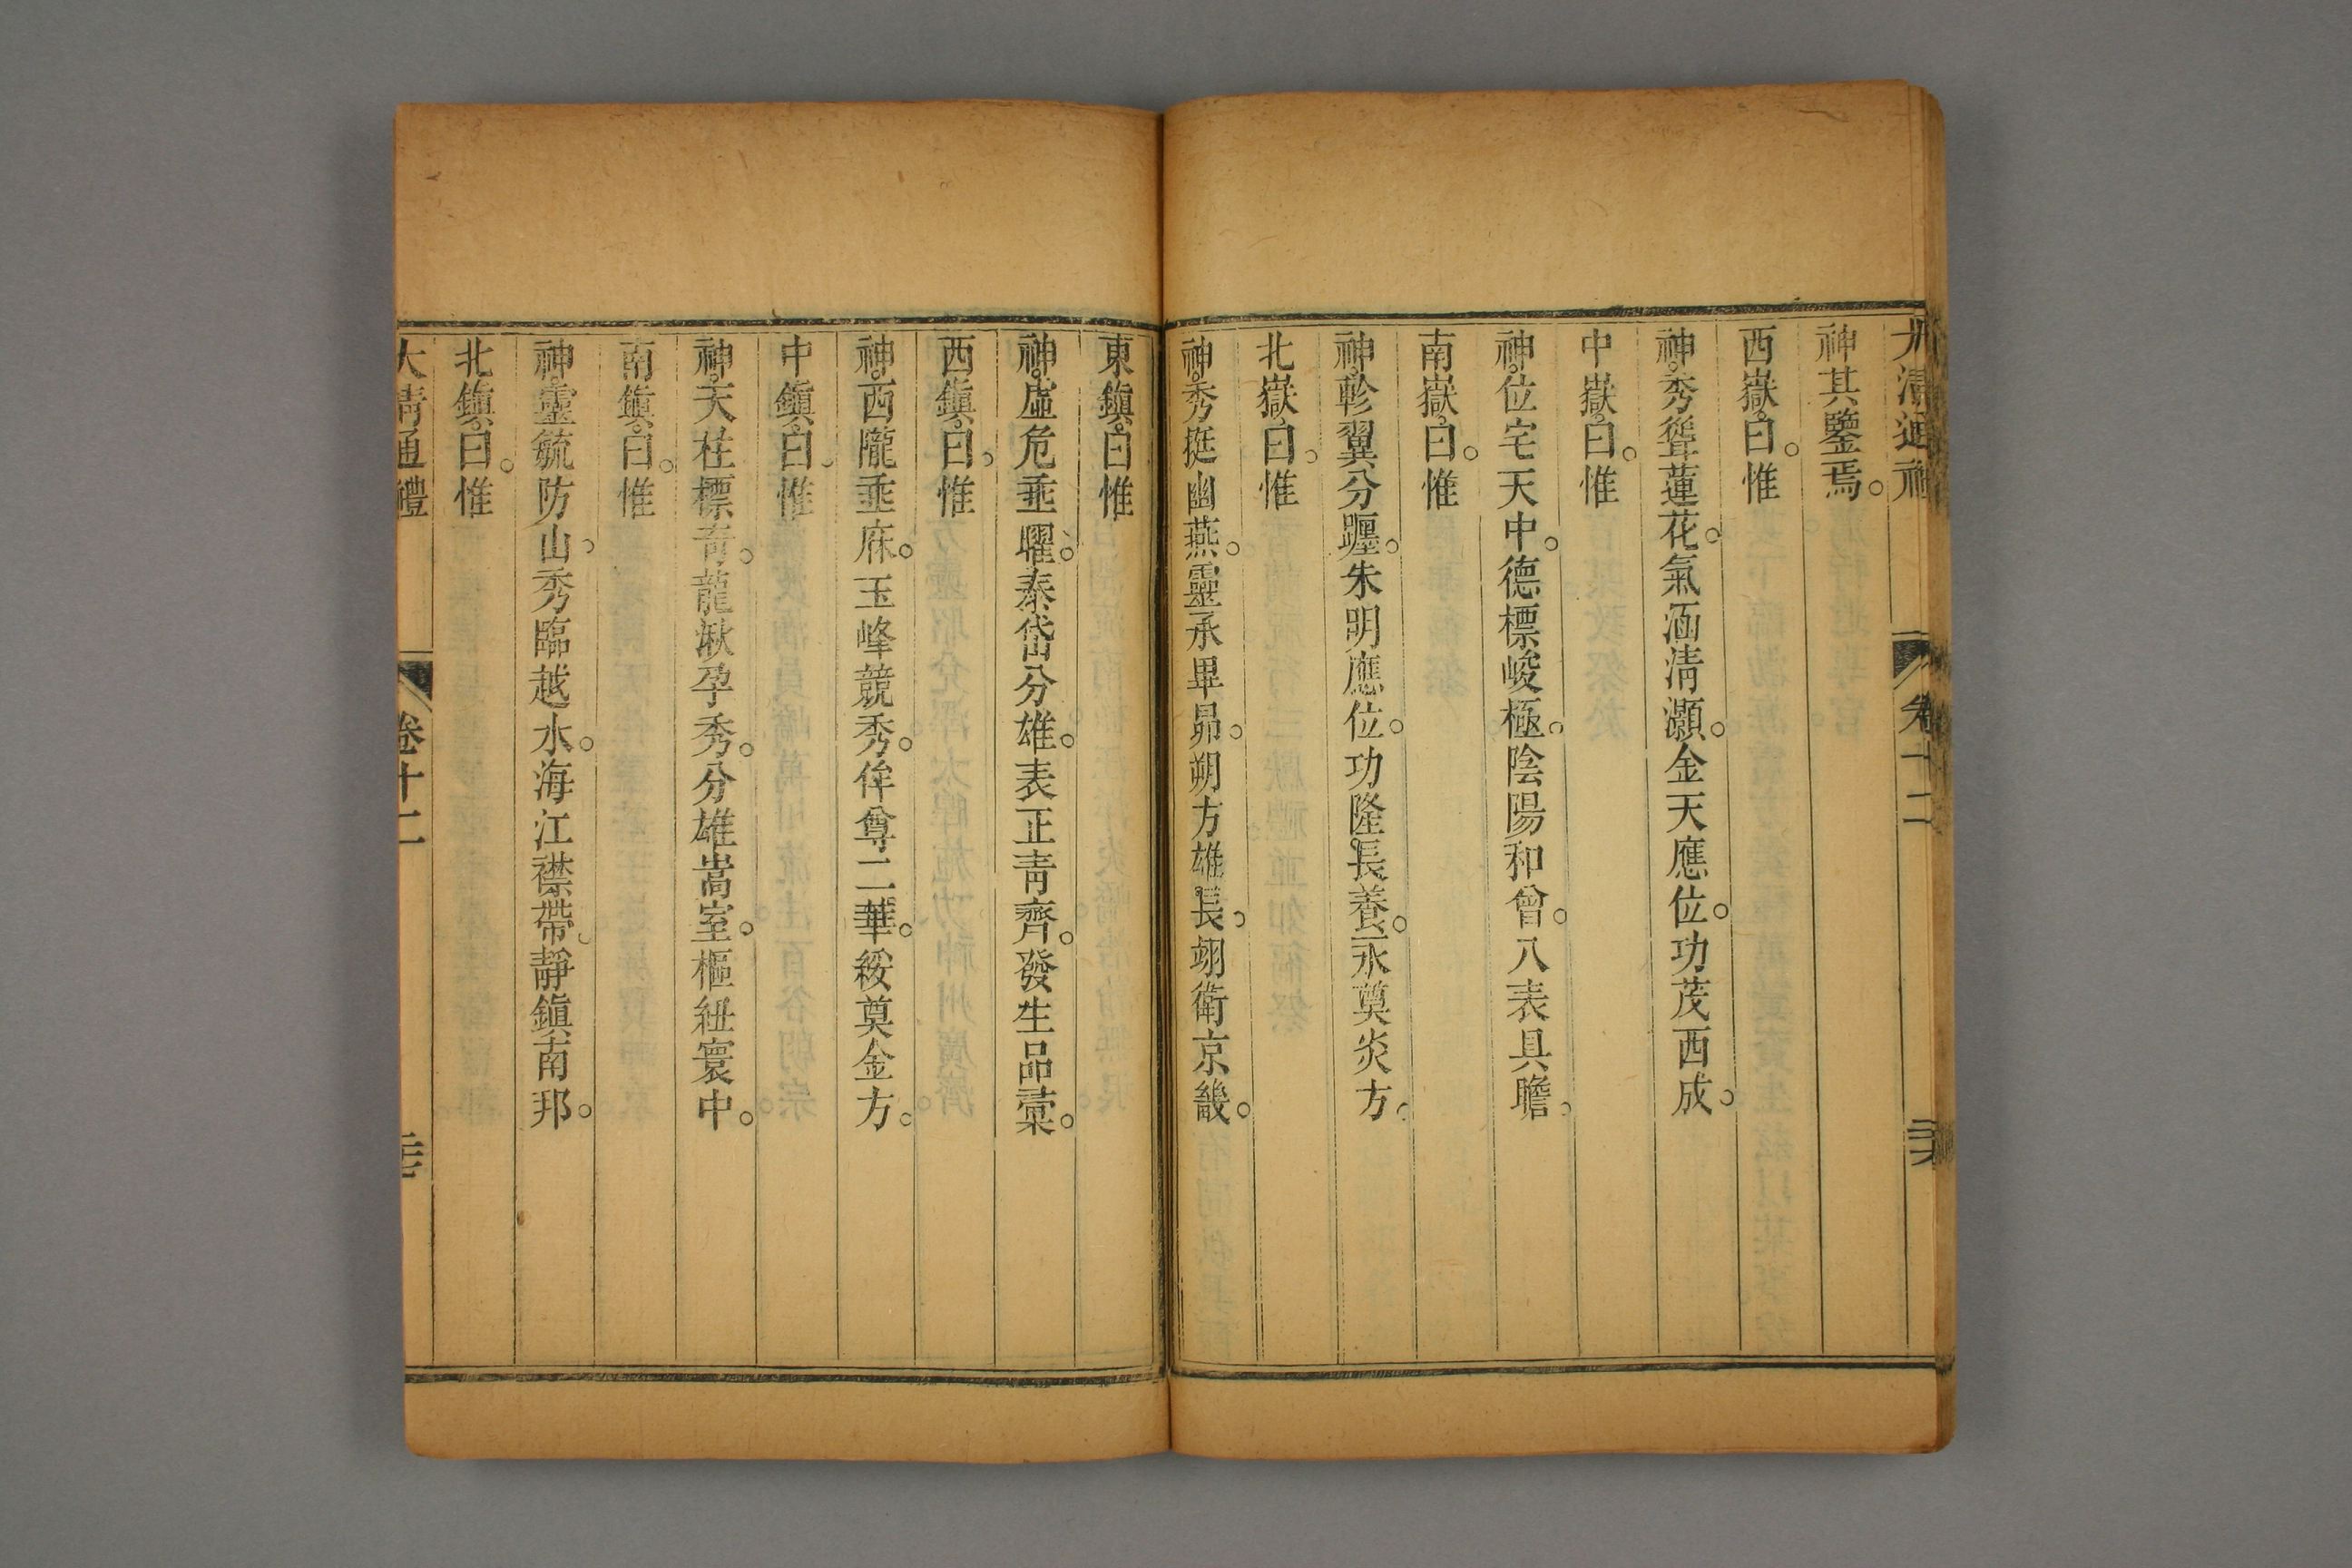 大清通禮 卷十二
神其鑒焉。
西嶽。曰。惟
神。秀聳蓮花。氣涵清灝。金天應位。功茂西成。
中嶽。曰。惟
神。位宅天中。德標峻極。陰陽和會。八表具瞻。
南嶽。曰。惟
神。軫翼分躔。朱明應位。功隆長養。永奠炎方。
北嶽。曰。惟
神。秀挺幽燕。靈承畢昴。朔方雄長。翊衛京畿。
東鎮。曰惟
神。虛危垂曜。泰岱分雄。表正青齊。發生品彙。
西鎮。曰。惟
神。西隴垂庥。玉峰競秀。侔尊二華。綏奠金方。
中鎮。曰。惟
神。天柱標奇。龍湫孕秀。分雄嵩室。樞紐寰中。
南鎮。曰。惟
神。靈毓防山。秀臨越水。海江襟帶。靜鎮南邦。
北鎮。曰。惟
大清通禮 卷十二